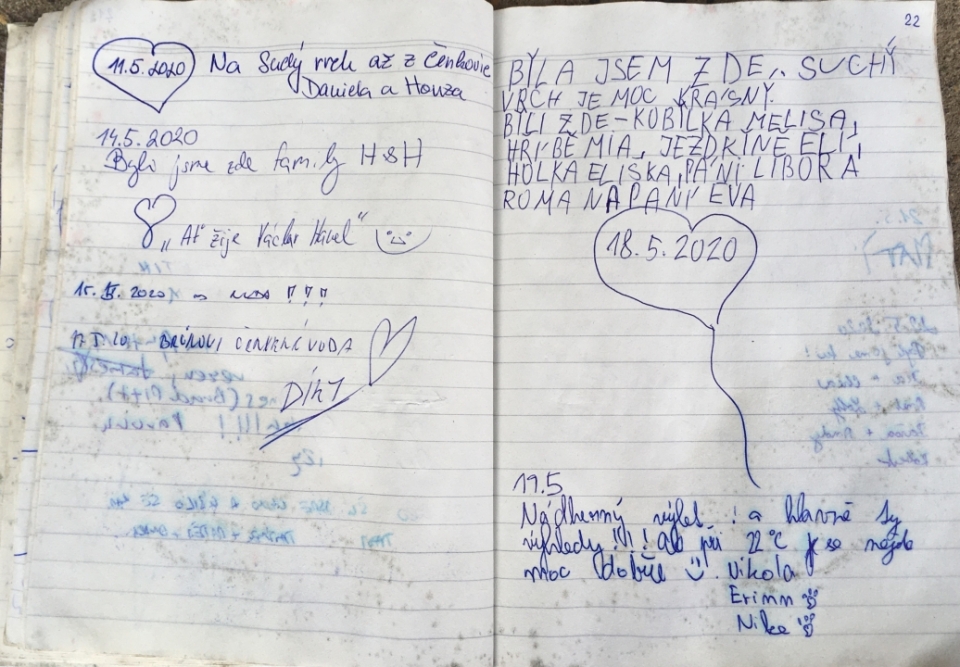 11.5.2020 Na Suchý vrch až z Čenkovic
Daniela a Honza
14.5.2020
Byli jsme zde family H&H
„Ať žije Václav Havel"
15. 2020 !!!
ČERVENÁ VODA
DÍKY
22
BYLA JSEM ZDE,. SUCHÝ
VRCH JE MOC KRÁSNÝ.
BILI ZDE-KOBILKA MELISA,
HRÍBĚ MIA, JEZDKINĚ ELI,
HOLKA ELISKA, PÁNI LIBORA
ROMANA PANÍ EVA
18.5.2020
19.5
Nádherný výlet ! a hlavně ty
výhledy !!! při 22°C se
moc dobře Nikola
Erinn
Nike